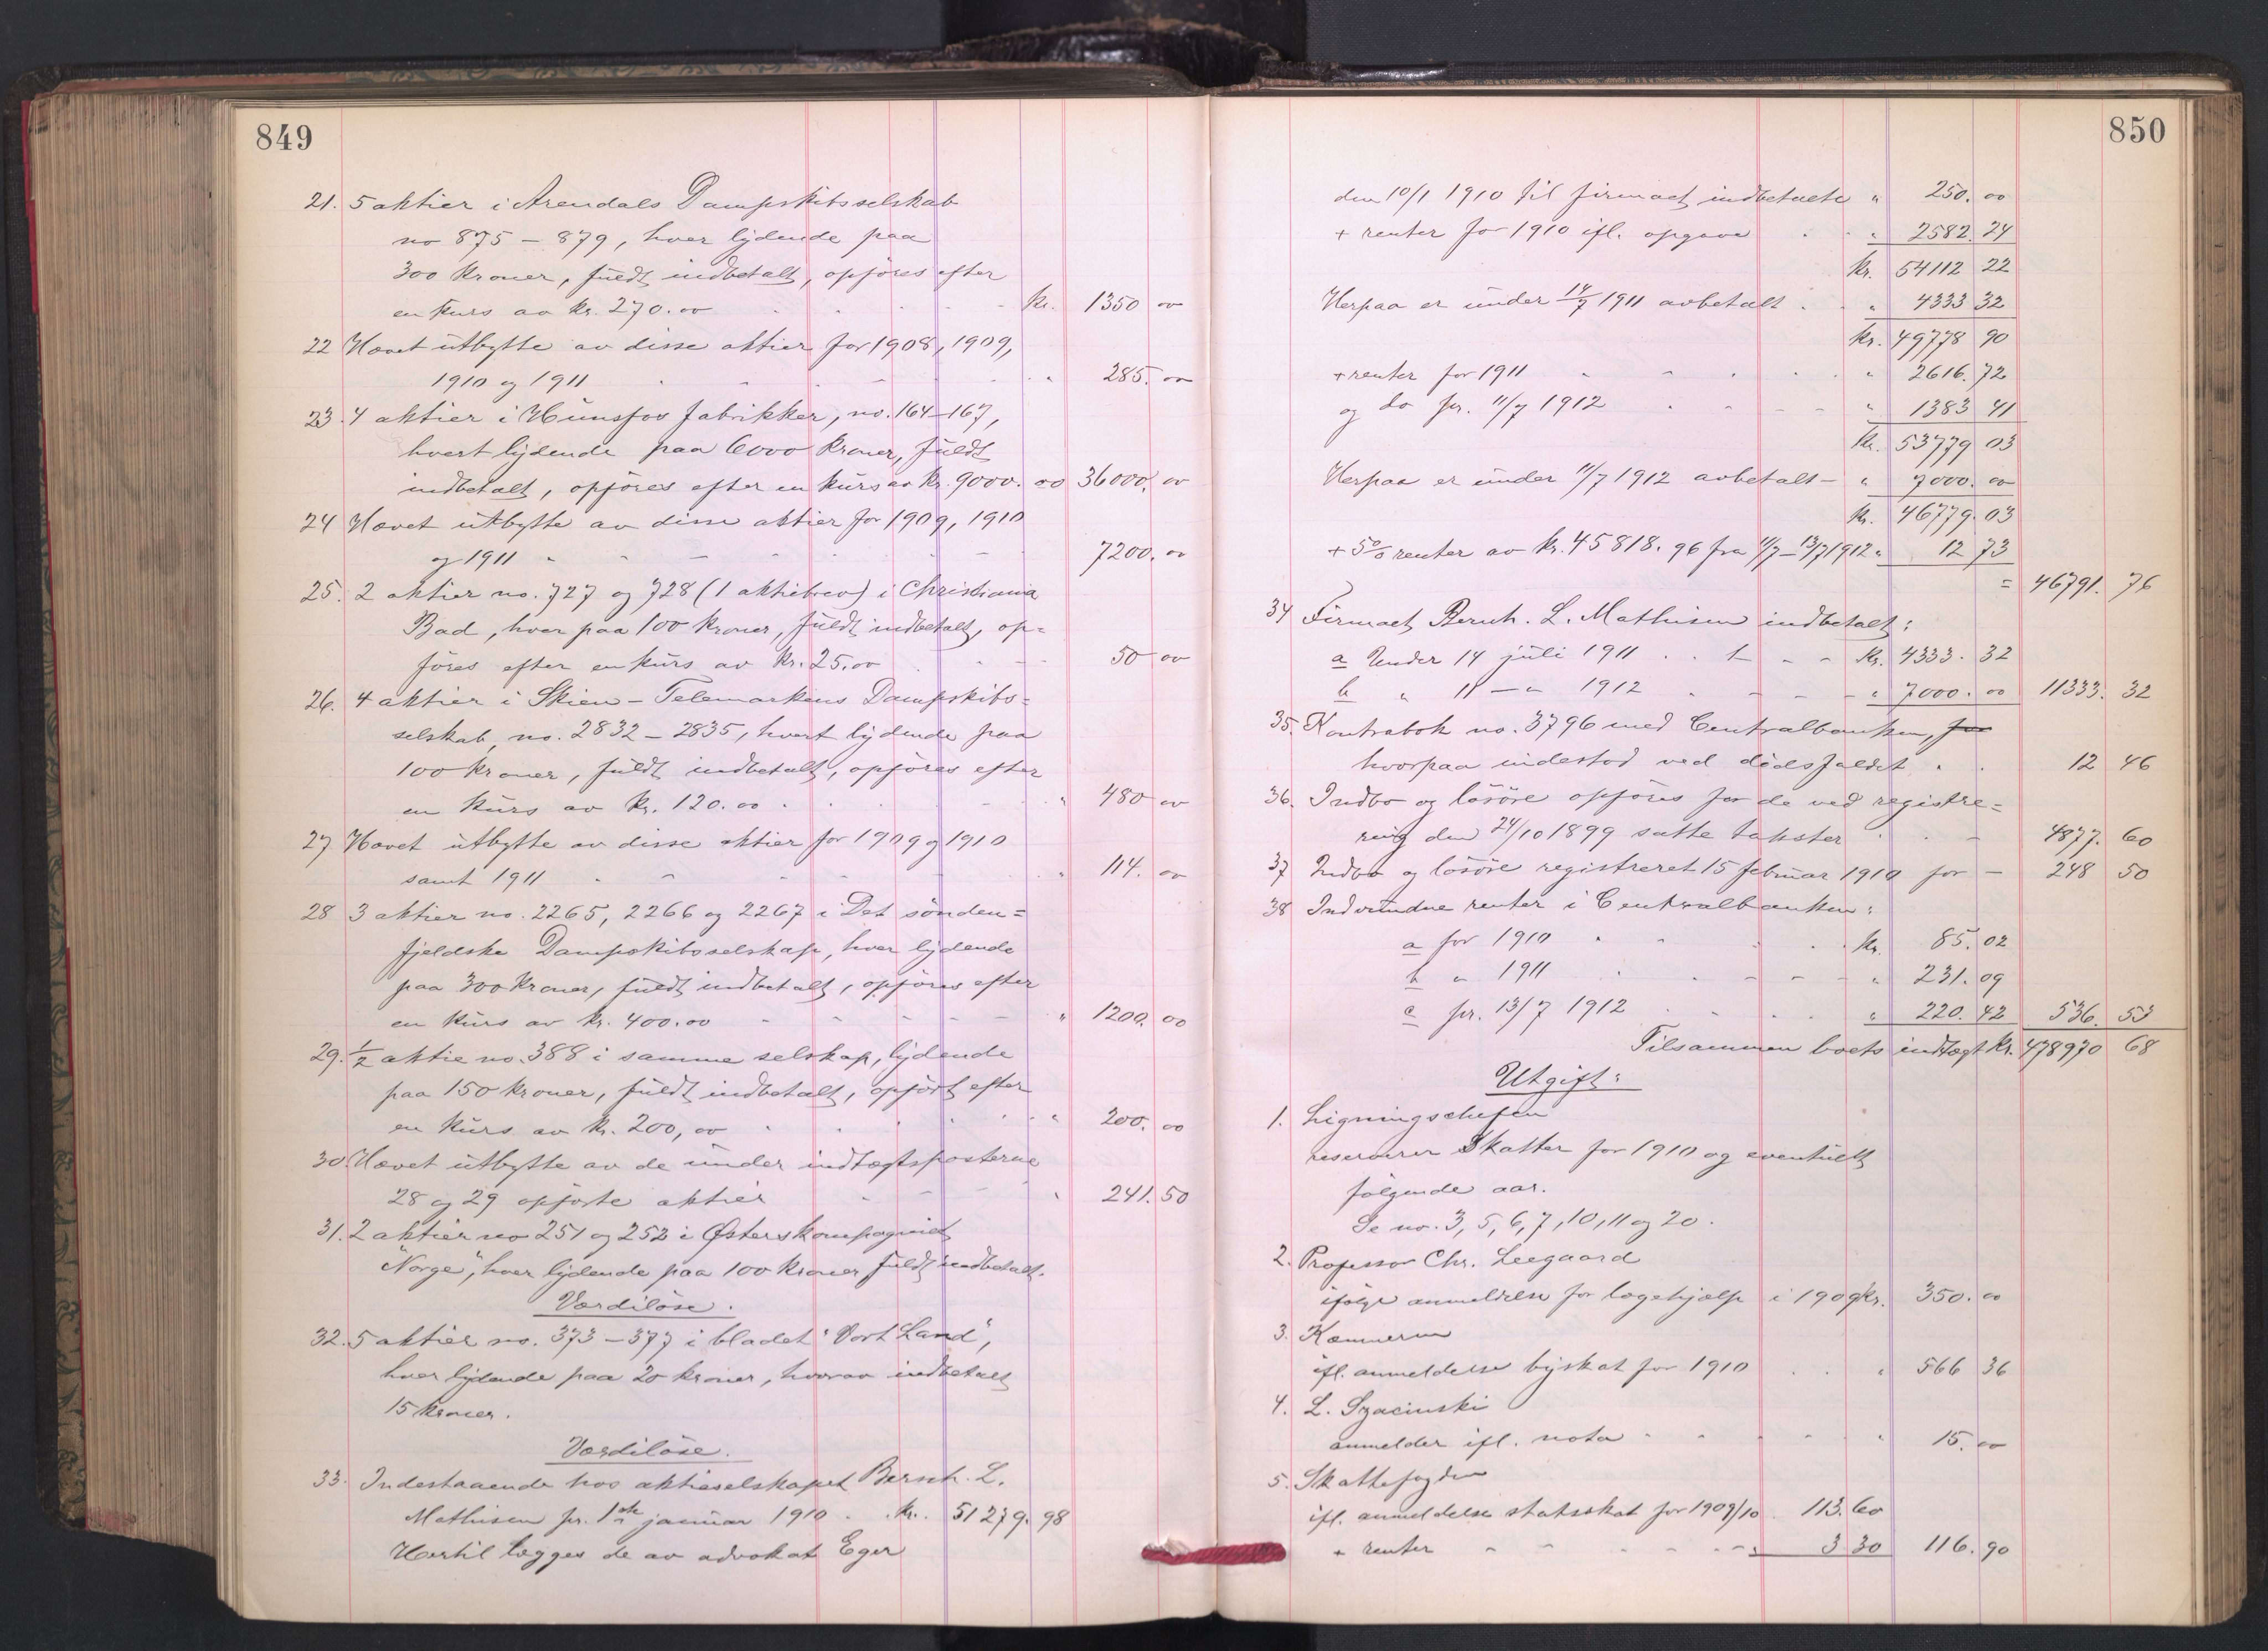 849
21. 5 aktier i Arendals Dampskibsselskab
no 875 – 879, hver lydende paa
300 kroner, fuldt indbetalt, opføres efter
en kurs av kr. 270.00 kr. 1350 00
22 Hævet utbytte av disse aktier for 1908, 1909,
1910 og 1911 " 285. 00
23. 4 aktier i Hunsfos fabrikker, no. 164–167,
hvert lydende paa 6000 kroner, fuldt
indbetalt, opføres efter en kurs av kr. 9000.00 36000. 00
24 Hævet utbytte av disse aktier for 1909, 1910
og 1911 7200. 00
25. 2 aktier no. 727 og 728 (1 aktiebrev) i Christiania
Bad, hver paa 100 kroner, fuldt indbetalt, op=
føres efter en kurs av kr. 25.00 50 00
26. 4 aktier i Skien – Telemarkens Dampskibs=
selskab, no. 2832 – 2835, hvert lydende paa
100 kroner, fuldt indbetalt, opføres efter
en kurs av kr. 120.00 " 480 00
27 Hævet utbytte av disse aktier for 1909 og 1910
samt 1911 " 114. 00
28 3 aktier no. 2265, 2266 og 2267 i Det sønden=
fjeldske Dampskibsselskap, hver lydende
paa 300 kroner, fuldt indbetalt, opføres efter
en kurs av kr. 400.00 " 1200. 00
29. 1/2 aktie no. 388 i samme selskap, lydende
paa 150 kroner, fuldt indbetalt, opført efter
en kurs av kr. 200,00 " 200. 00
30. Hævet utbytte av de under indtægtsposterne
28 og 29 opførte aktier " 241. 50
31. 2 aktier no 251 og 252 i Østerskompagniet
"Norge", hver lydende paa 100 kroner fuldt indbetalt.
Værdiløse.
32. 5 aktier no. 373 – 377 i bladet "Vort Land",
hver lydende paa 20 kroner, hvorav indbetalt
15 kroner.
Værdiløse.
33. Indestaaende hos aktieselskapet Bernh. L.
Mathisen pr. 1ste januar 1910 . kr. 51279. 98
Hertil lægges de av advokat Eger
850
den 10/1 1910 til firmaet indbetalte " 250. 00
+ renter for 1910 ifl. opgave " 2582. 24
kr. 54112 22
Herpaa er under 14/7 1911 avbetalt " 4333 32
kr. 49778 90
+ renter for 1911 " 2616. 72
og do pr. 11/7 1912 " 1383 41
kr. 53779 03
Herpaa er under 11/7 1912 avbetalt – " 7000. 00
kr. 46779. 03
+ 5% renter av kr. 45818. 96 fra 11/7 – 13/7 1912 " 12 73
= 46791. 76
34 Firmaet Bernh. L. Mathisen indbetalt:
a Under 14 juli 1911 kr. 4333. 32
b " 11 – " 1912 " 7000. 00 11333. 32
35. Kontrabok no. 3796 med Centralbanken, for
hvorpaa indestod ved dødsfaldet 12 46
36. Indbo og løsøre opføres for de ved registre=
ring den 24/10 1899 satte takster 4877. 60
37 Indbo og løsøre registreret 15 februar 1910 for – 248 50
38 Indvundne renter i Centralbanken:
a for 1910 kr. 85. 02
b " 1911 " 231. 09
c pr. 13/7 1912 " 220. 42 536. 53
Tilsammen boets indtægt kr. 478970 68
Utgift:
1. Ligningschefen
reserverer Skatter for 1910 og eventuelt
følgende aar.
Se no. 3, 5, 6, 7, 10, 11 og 20.
2. Professor Chr. Leegaard
ifølge anmeldelse for lægehjælp i 1909 kr. 350. 00
3. Kæmneren
ifl. anmeldelse byskat for 1910 " 566 36
4. L. Szacinski
anmelder ifl. nota " 15. 00
5. Skattefogden
ifl. anmeldelse statsskat for 1909/10 . 113. 60
+ renter " 3 30 116. 90